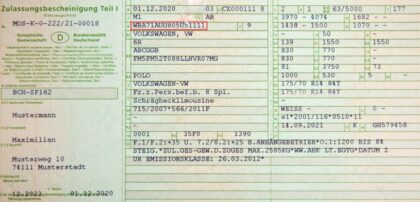 Zulassungsbescheinigung Teil I
(Fahrzeugschein)
MOS-K-0-222/21-00018
Europäische Gemeinschaft
D
Bundesrepublik Deutschland
BCH-SF162
Mustermann
Maximilian
Musterweg 10
74111 Musterstadt
12.2023 01.12.2020
01.12.2020 03 CX000111 8
M1 AB
WBA71AUU805C51111 9
VOLKSWAGEN, VW
6R
ABCGGB
FM5FM52T088LLNVR07MG
POLO
VOLKSWAGEN-VW
Fz.z.Pers.bef.b. 8 Spl.
Schräghecklimousine
715/2007*566/2011F
0001 35F0 1390
2 1 63/5000 177
3970 - 4074 1682 - -
1438 - 1500 1070 -
- 50 -
139 1550 - 1550
- 830 780 -
81 3750 73
530 5 -
175/70 R14 84T
175/70 R14 84T
WEISS - 0
e1*2001/116*0510*11
14.09.2021 K GH579458
F.1/F.2:+35 U. 7.2/8.2:+25 B.ANHÄNGEBETRIEB*O.I:1200 BIS 8%
STEIG.*ZUL.GES-GEW.D.ZUGES MAX.2585KG*WW.AHK LT.EGTG*DATUM Z
UR EMISSIONSKLASSE: 26.03.2012*